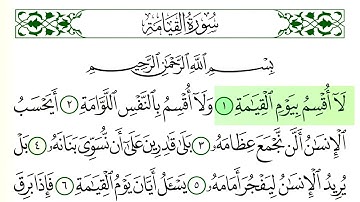 سُورَةُ القِيَامَةِ
بِسْمِ اللَّهِ الرَّحْمَٰنِ الرَّحِيمِ
لَآ أُقْسِمُ بِيَوْمِ الْقِيَٰمَةِ ١ وَلَآ أُقْسِمُ بِالنَّفْسِ اللَّوَّامَةِ ٢ أَيَحْسَبُ
الْإِنسَٰنُ أَلَّن نَّجْمَعَ عِظَامَهُۥ ٣ بَلَىٰ قَٰدِرِينَ عَلَىٰٓ أَن نُّسَوِّىَ بَنَانَهُۥ ٤ بَلْ
يُرِيدُ الْإِنسَٰنُ لِيَفْجُرَ أَمَامَهُۥ ٥ يَسْـَٔلُ أَيَّانَ يَوْمُ الْقِيَٰمَةِ ٦ فَإِذَا بَرِقَ